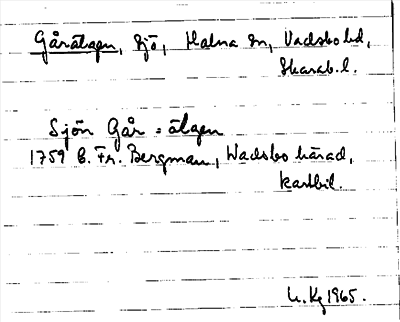 Gårälgen, sjö, Halna sn, Vadsbo hd,
Skarab. l.
Sjön Går = älgen
1759 C. Fr. Bergman, Wadsbo härad,
kartbil.
1965.